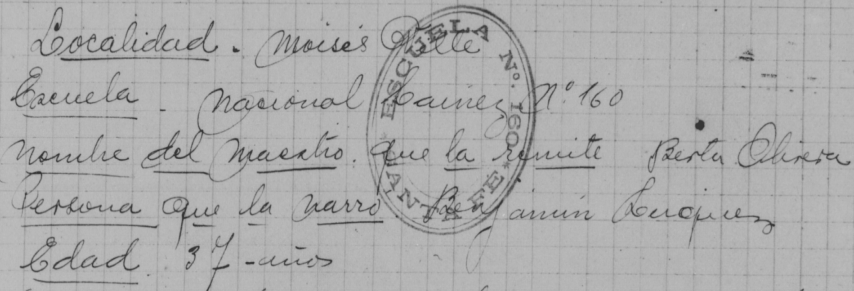 Localidad. Moisés Ville
Escuela. Nacional Lainez Nº 160
Nombre del maestro. que la remite Berta Olivera
Persona que la narró. Benjamin Luques
Edad. 37-años
ESCUELA Nº. 160 SANTA FÉ